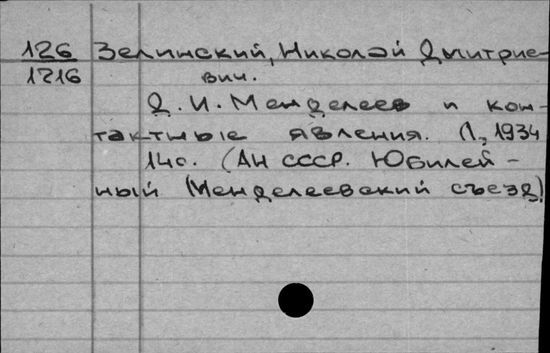 126 Зелинский, Николай Дмитрие-
1216 вич.
Д. И. Менделеев и кон-
тактные явления. Л., 1934
14с. (АН СССР. Юбилей-
ный Менделеевский съезд)